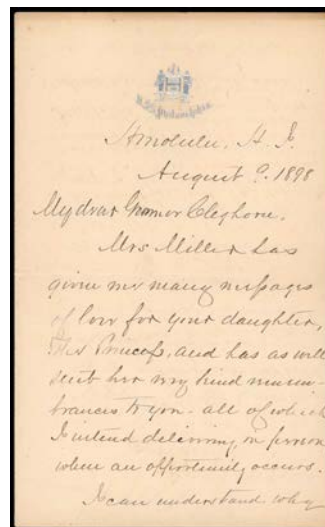 U.S.S. Philadelphia
Honolulu, H. I.
August 9. 1898
My dear Governor Cleghorn,
Mrs Miller has
given me many messages
of love for your daughter,
the Princess, and has as well
sent her very kind remem-
brances to you - all of which
I intend delivering in person
when an opportunity occurs.
I can understand why